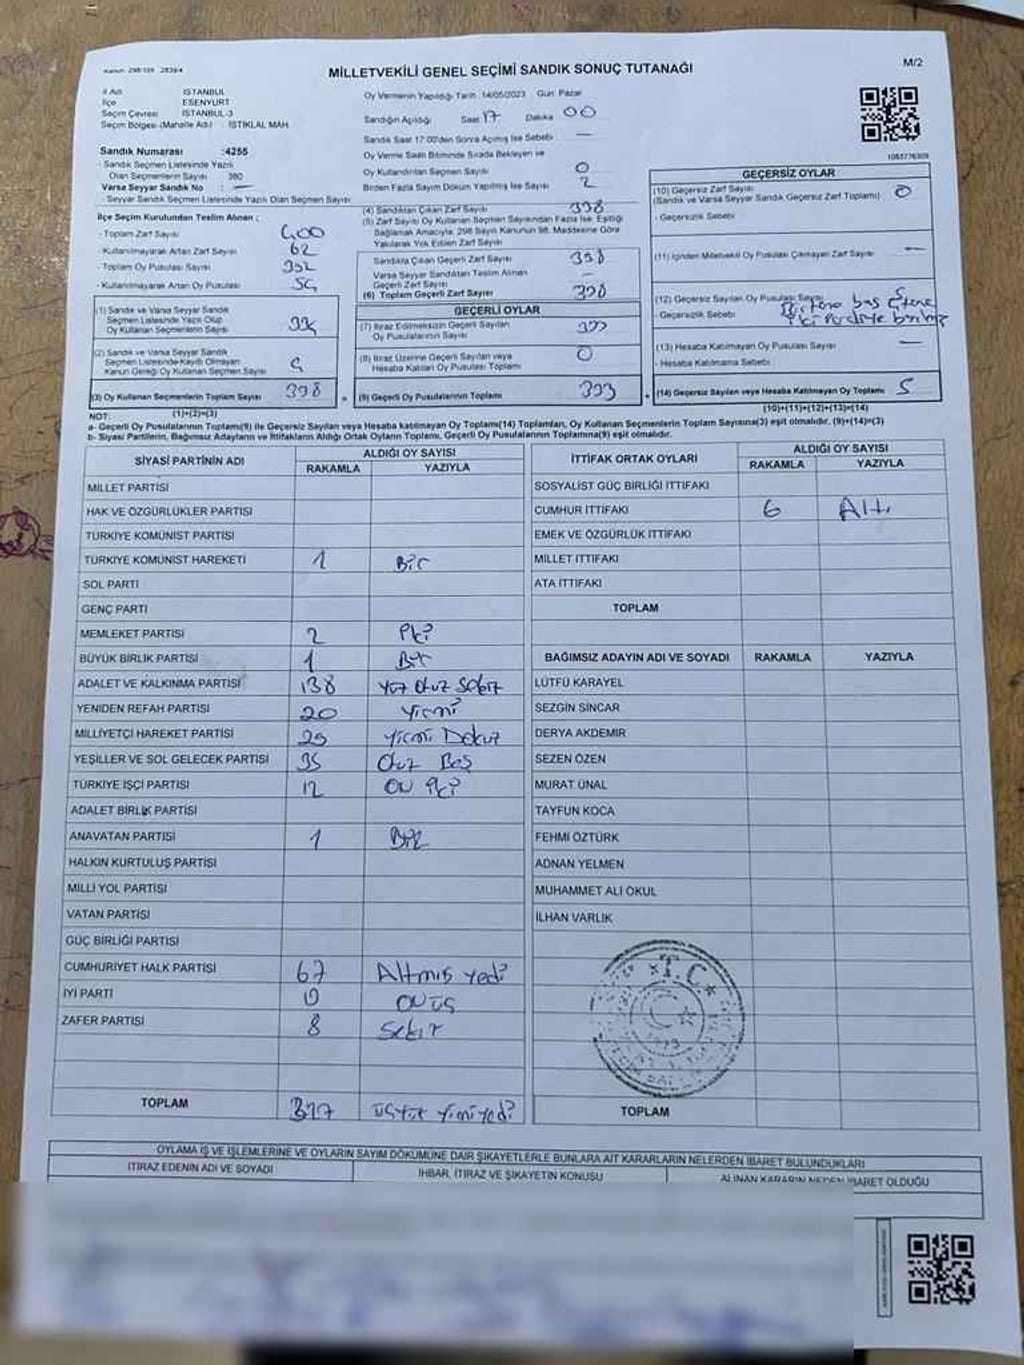 MİLLETVEKİLİ GENEL SEÇİMİ SANDIK SONUÇ TUTANAĞI
M/2
İl Adı İSTANBUL
İlçe ESENYURT
Seçim Çevresi İSTANBUL-3
Seçim Bölgesi (Mahalle Adı) : İSTİKLAL MAH
Sandık Numarası :4255
- Sandık Seçmen Listesinde Yazılı
Olan Seçmenlerin Sayısı 380
Varsa Seyyar Sandık No : —
- Seyyar Sandık Seçmen Listesinde Yazılı Olan Seçmen Sayısı
İlçe Seçim Kurulundan Teslim Alınan :
- Toplam Zarf Sayısı 400
- Kullanılmayarak Artan Zarf Sayısı 62
- Toplam Oy Pusulası Sayısı 392
- Kullanılmayarak Artan Oy Pusulası
(1) Sandık ve Varsa Seyyar Sandık
Seçmen Listesinde Yazılı Olup
Oy Kullanan Seçmenlerin Sayısı
(2) Sandık ve Varsa Seyyar Sandık
Seçmen Listesinde Kayıtlı Olmayan
Kanun Gereği Oy Kullanan Seçmen Sayısı
(3) Oy Kullanan Seçmenlerin Toplam Sayısı 338
Oy Vermenin Yapıldığı Tarih 14/05/2023 Gün: Pazar
Sandığın Açıldığı Saat 17 Dakika 00
Sandık Saat 17:00'den Sonra Açılmış İse Sebebi —
Oy Verme Saati Bitiminde Sırada Bekleyen ve
Oy Kullandırılan Seçmen Sayısı 0
Birden Fazla Sayım Döküm Yapılmış İse Sayısı 2
(4) Sandıktan Çıkan Zarf Sayısı 338
(5) Zarf Sayısı Oy Kullanan Seçmen Sayısından Fazla İse, Eşitliği
Sağlamak Amacıyla, 298 Sayılı Kanunun 98. Maddesine Göre
Yakılarak Yok Edilen Zarf Sayısı
Sandıkta Çıkan Geçerli Zarf Sayısı 338
Varsa Seyyar Sandıktan Teslim Alınan
Geçerli Zarf Sayısı —
(6) Toplam Geçerli Zarf Sayısı 338
GEÇERLİ OYLAR
(7) İtiraz Edilmeksizin Geçerli Sayılan
Oy Pusulası Sayısı 333
(8) İtiraz Üzerine Geçerli Sayılan veya
Hesaba Katılan Oy Pusulası Toplamı 0
(9) Geçerli Oy Pusulalarının Toplamı 333
1083776309
GEÇERSİZ OYLAR
(10) Geçersiz Zarf Sayısı
(Sandık ve Varsa Seyyar Sandık Geçersiz Zarf Toplamı) 0
- Geçersizlik Sebebi
(11) İçinden Milletvekili Oy Pusulası Çıkmayan Zarf Sayısı —
(12) Geçersiz Sayılan Oy Pusulası Sayısı 5
- Geçersizlik Sebebi
(13) Hesaba Katılmayan Oy Pusulası Sayısı —
- Hesaba Katılmama Sebebi
(14) Geçersiz Sayılan veya Hesaba Katılmayan Oy Toplamı 5
NOT: (1)+(2)=(3) (10)+(11)+(12)+(13)=(14)
a- Geçerli Oy Pusulalarının Toplamı(9) ile Geçersiz Sayılan veya Hesaba katılmayan Oy Toplamı(14) Toplamları, Oy Kullanan Seçmenlerin Toplam Sayısına(3) eşit olmalıdır. (9)+(14)=(3)
b- Siyasi Partilerin, Bağımsız Adayların ve İttifakların Aldığı Ortak Oyların Toplamı, Geçerli Oy Pusulalarının Toplamına(9) eşit olmalıdır.
SİYASİ PARTİNİN ADI ALDIĞI OY SAYISI
RAKAMLA YAZIYLA
MİLLET PARTİSİ
HAK VE ÖZGÜRLÜKLER PARTİSİ
TÜRKİYE KOMÜNİST PARTİSİ
TÜRKİYE KOMÜNİST HAREKETİ 1 Bir
SOL PARTİ
GENÇ PARTİ
MEMLEKET PARTİSİ 2 İki
BÜYÜK BİRLİK PARTİSİ 1 Bir
ADALET VE KALKINMA PARTİSİ 138 Yüz Otuz Sekiz
YENİDEN REFAH PARTİSİ 20 Yirmi
MİLLİYETÇİ HAREKET PARTİSİ 29 Yirmi Dokuz
YEŞİLLER VE SOL GELECEK PARTİSİ 35 Otuz Beş
TÜRKİYE İŞÇİ PARTİSİ 12 On İki
ADALET BİRLİK PARTİSİ
ANAVATAN PARTİSİ 1 Bir
HALKIN KURTULUŞ PARTİSİ
MİLLİ YOL PARTİSİ
VATAN PARTİSİ
GÜÇ BİRLİĞİ PARTİSİ
CUMHURİYET HALK PARTİSİ 67 Altmış Yedi
İYİ PARTİ 13 On üç
ZAFER PARTİSİ 8 Sekiz
TOPLAM 327 üçyüz yirmiyedi
İTTİFAK ORTAK OYLARI ALDIĞI OY SAYISI
RAKAMLA YAZIYLA
SOSYALİST GÜÇ BİRLİĞİ İTTİFAKI
CUMHUR İTTİFAKI 6 Altı
EMEK VE ÖZGÜRLÜK İTTİFAKI
MİLLET İTTİFAKI
ATA İTTİFAKI
TOPLAM
BAĞIMSIZ ADAYIN ADI VE SOYADI RAKAMLA YAZIYLA
LÜTFÜ KARAYEL
SEZGİN SİNCAR
DERYA AKDEMİR
SEZEN ÖZEN
MURAT ÜNAL
TAYFUN KOCA
FEHMİ ÖZTÜRK
ADNAN YELMEN
MUHAMMET ALİ OKUL
İLHAN VARLIK
T.C.
TOPLAM
OYLAMA İŞ VE İŞLEMLERİNE VE OYLARIN SAYIM DÖKÜMÜNE DAİR ŞİKAYETLERLE BUNLARA AİT KARARLARIN NELERDEN İBARET BULUNDUKLARI
İTİRAZ EDENİN ADI VE SOYADI İHBAR, İTİRAZ VE ŞİKAYETİN KONUSU ALINAN KARARIN NEDEN İBARET OLDUĞU